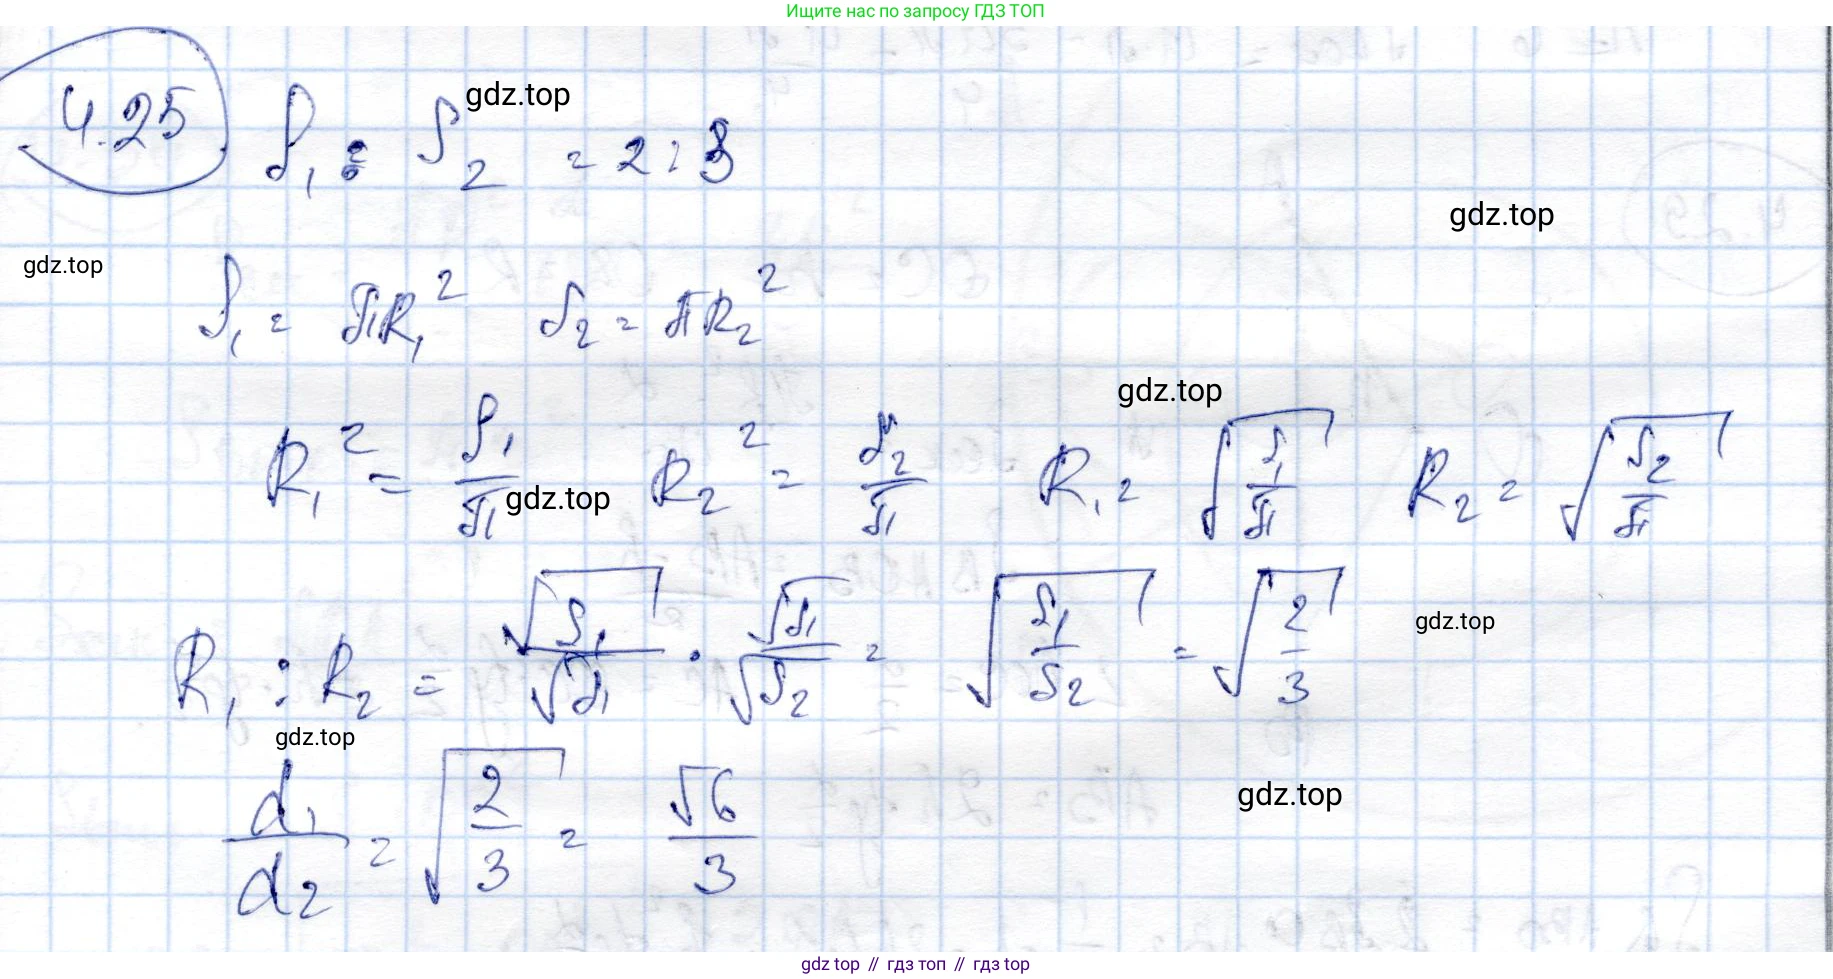 Ищите нас по запросу ГДЗ ТОП
gdz.top
4.25 S₁ : S₂ = 2 : 3
gdz.top
gdz.top
S₁ = πR₁² S₂ = πR₂²
gdz.top
R₁² = S₁/π R₂² = S₂/π R₁ = √(S₁/π) R₂ = √(S₂/π)
gdz.top
R₁ : R₂ = √S₁/√π · √π/√S₂ = √(S₁/S₂) = √(2/3)
gdz.top
gdz.top
d₁/d₂ = √(2/3) = √6/3
gdz.top
gdz top // гдз топ // гдз top